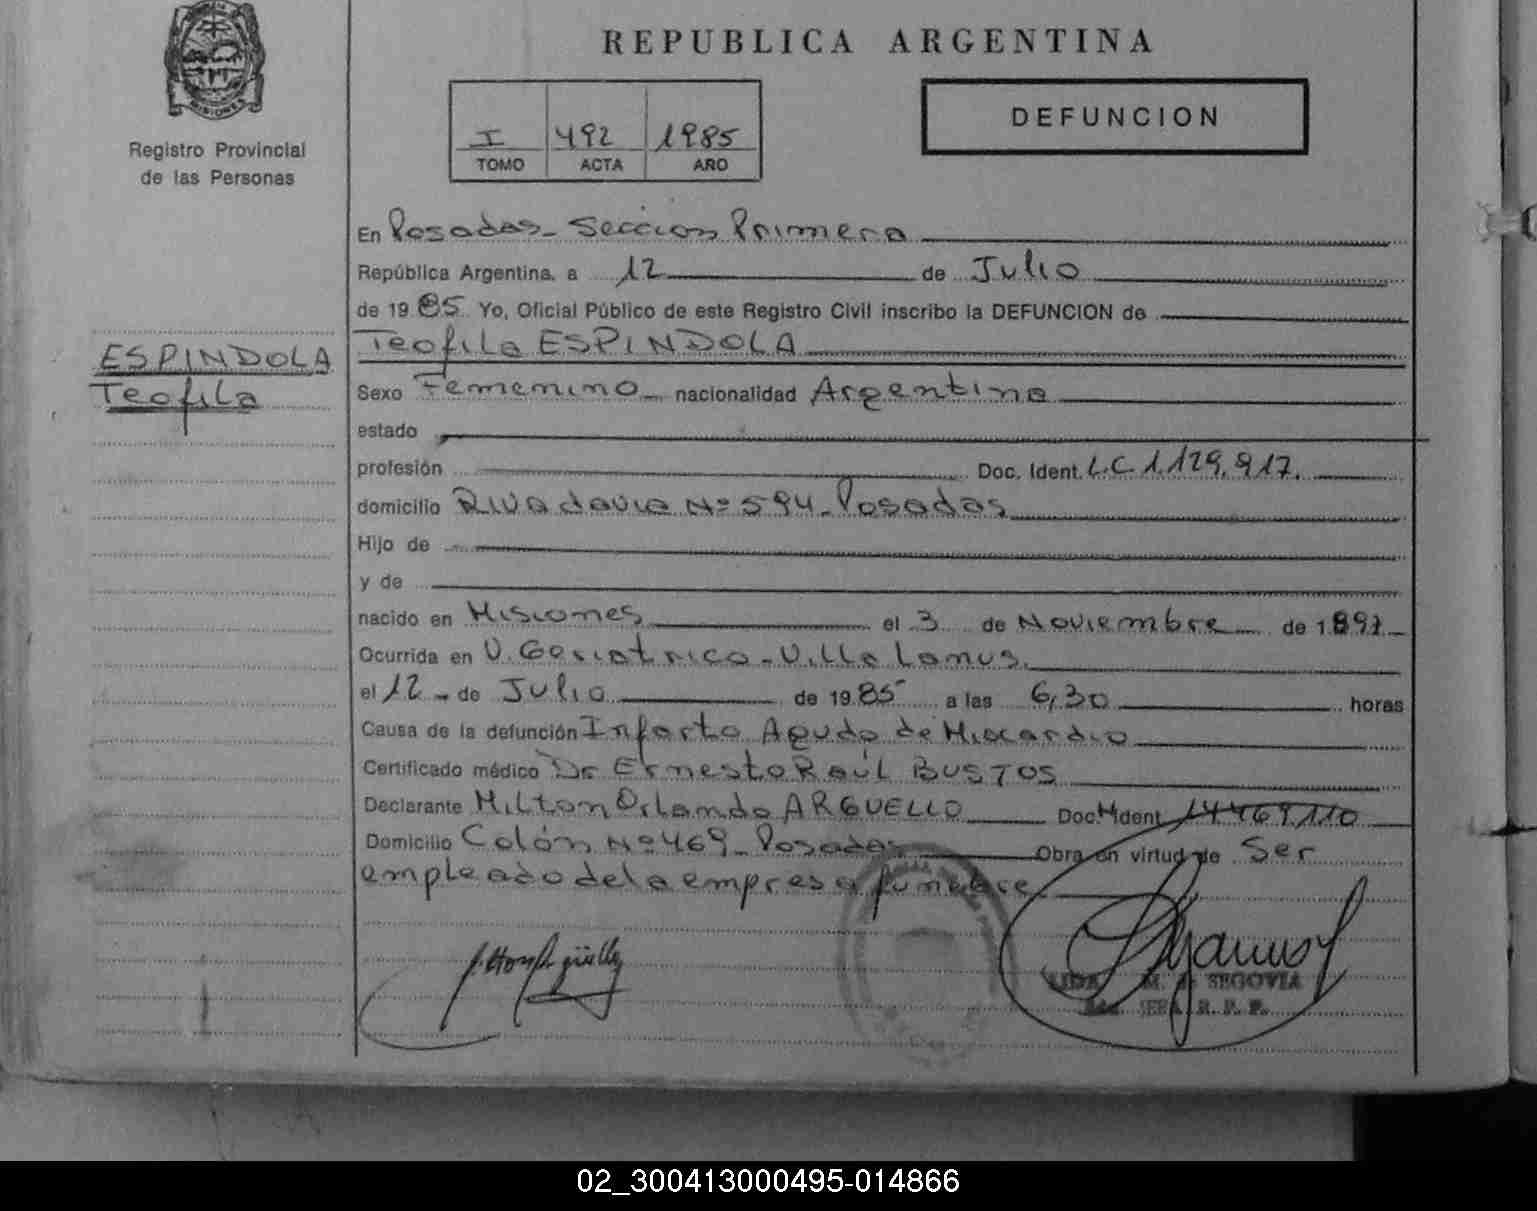 REPUBLICA ARGENTINA
MISIONES
Registro Provincial
de las Personas
I 492 1985
TOMO ACTA AÑO
DEFUNCION
En Posadas - Sección Primera
República Argentina, a 12 de Julio
de 1985 Yo, Oficial Público de este Registro Civil inscribo la DEFUNCION de
Teofila ESPINDOLA
ESPINDOLA
Teofila
Sexo Femenino nacionalidad Argentina
estado
profesión Doc. Ident. L.C 1.129.917.
domicilio Rivadavia Nº 594 - Posadas
Hijo de
y de
nacido en Misiones el 3 de Noviembre de 1897
Ocurrida en U. Geriatrico - Villa Lanus.
el 12 de Julio de 1985 a las 6,30 horas
Causa de la defunción Infarto Agudo de Miocardio
Certificado médico Dr Ernesto Raúl BUSTOS
Declarante Milton Orlando ARGUELLO Doc. Ident 14469110
Domicilio Colón Nº 469 - Posadas Obra en virtud de Ser
empleado de la empresa funebre
M. SEGOVIA
R. P. P.
02_300413000495-014866